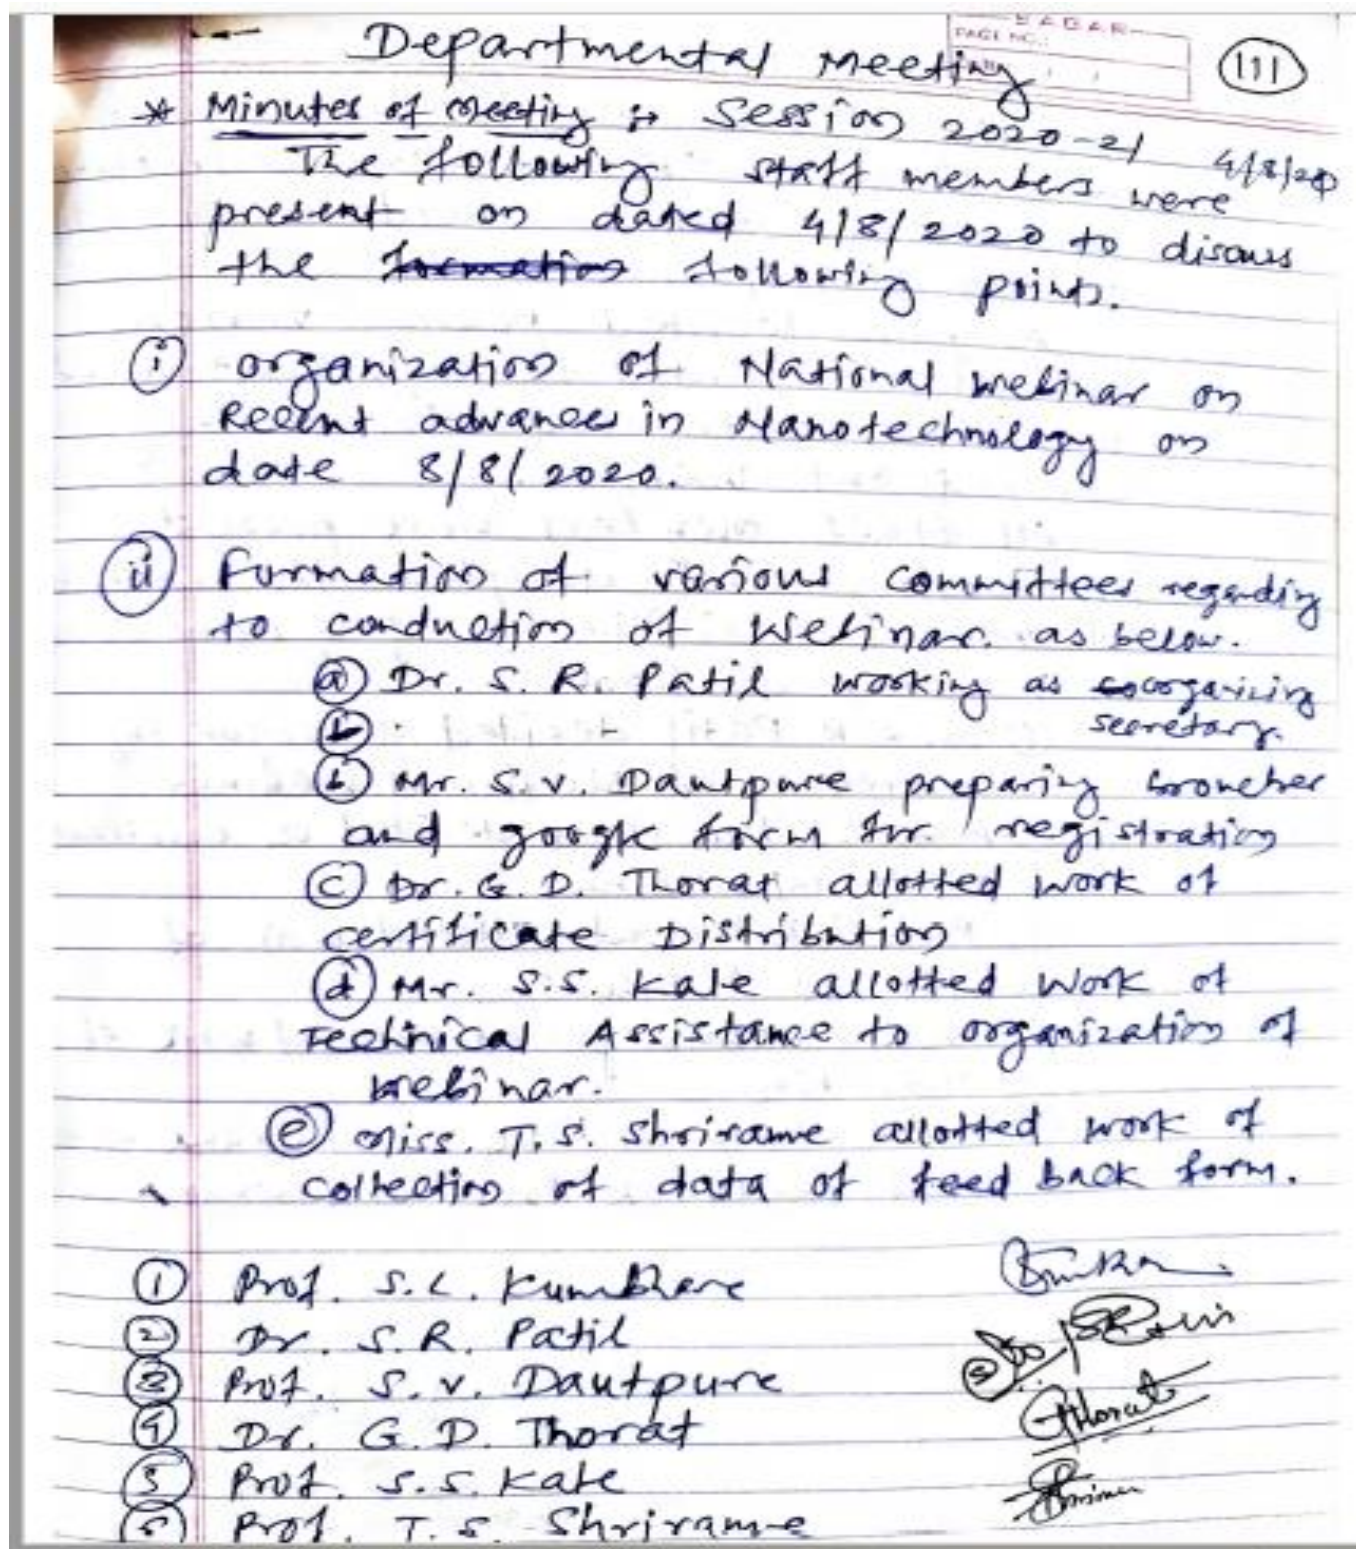 SAGAR
PAGE NO.:
Departmental Meeting
111
* Minutes of Meeting :- Session 2020-21
4/8/20
The following staff members were
present on dated 4/8/2020 to discuss
the formation following points.
i organization of National webinar on
Recent advances in Nanotechnology on
date 8/8/2020.
ii Formation of various committees regarding
to conduction of Webinar. as below.
a Dr. S. R. Patil working as organizing
secretary.
b
b Mr. S.V. Dautpure preparing broucher
and google form for registration
c Dr. G. D. Thorat allotted work of
certificate Distribution
d Mr. S.S. Kale allotted work of
Technical Assistance to organization of
webinar.
e Miss. T.S. Shrirame allotted work of
collection of data of feed back form.
1 Prof. S.L. Kumbhare
2 Dr. S.R. Patil
3 Prof. S.V. Dautpure
4 Dr. G.D. Thorat
GThorat
5 Prof. S.S. Kale
6 Prof. T.S. Shrirame